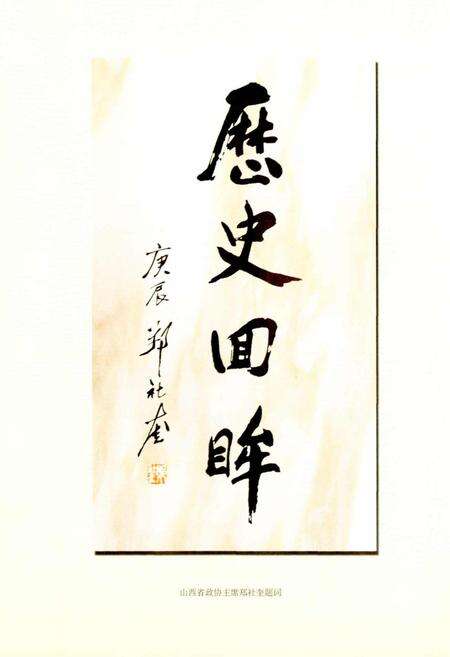 歷史回眸
庚辰 郑社奎
山西省政协主席郑社奎题词